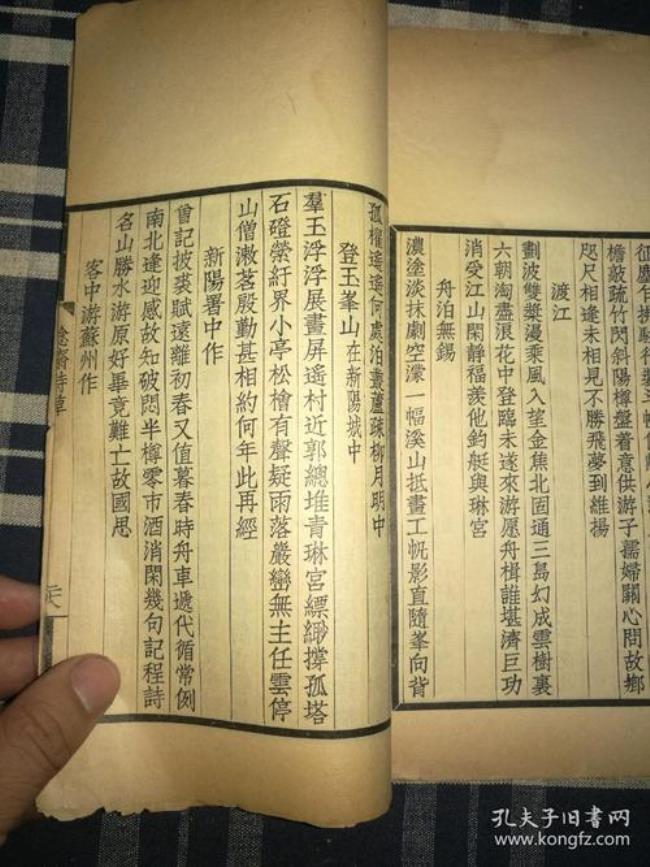 檐敲疏竹閃斜陽樽盤着意供游子孺婦關心問故鄉
咫尺相逢未相見不勝飛夢到維揚
渡江
劃波雙槳漫乘風入望金焦北固通三島幻成雲樹裏
六朝淘盡浪花中登臨未遂來游愿舟楫誰堪濟巨功
消受江山閑靜福羨他釣艇與琳宮
舟泊無錫
濃塗淡抹劇空濛一幅溪山抵畫工帆影直隨峯向背
孤櫂遙遙何處泊叢蘆疎柳月明中
登玉峯山在新陽城中
羣玉浮浮展畫屏遙村近郭總堆青琳宮縹緲撐孤塔
石磴縈紆界小亭松檜有聲疑雨落巖巒無主任雲停
山僧漱茗殷勤甚相約何年此再經
新陽署中作
曾記披裘賦遠離初春又值暮春時舟車遞代循常例
南北逢迎感故知破悶半樽零市酒消閑幾句記程詩
名山勝水游原好畢竟難亡故國思
客中游蘇州作
孔夫子旧书网
www.kongfz.com